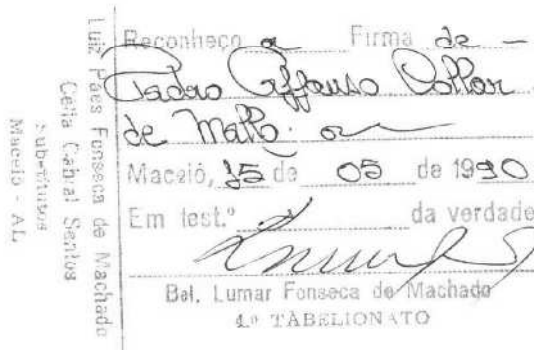 Reconheço a Firma de —
Pedro Affonso Collor
de Mello.
Maceió, 15 de 05 de 1990
Em test.º da verdade
Bel. Lumar Fonseca de Machado
4.º TABELIONATO
Luiz Paes Fonseca de Machado
Celia Cabral Santos
Substitutos
Maceió - AL